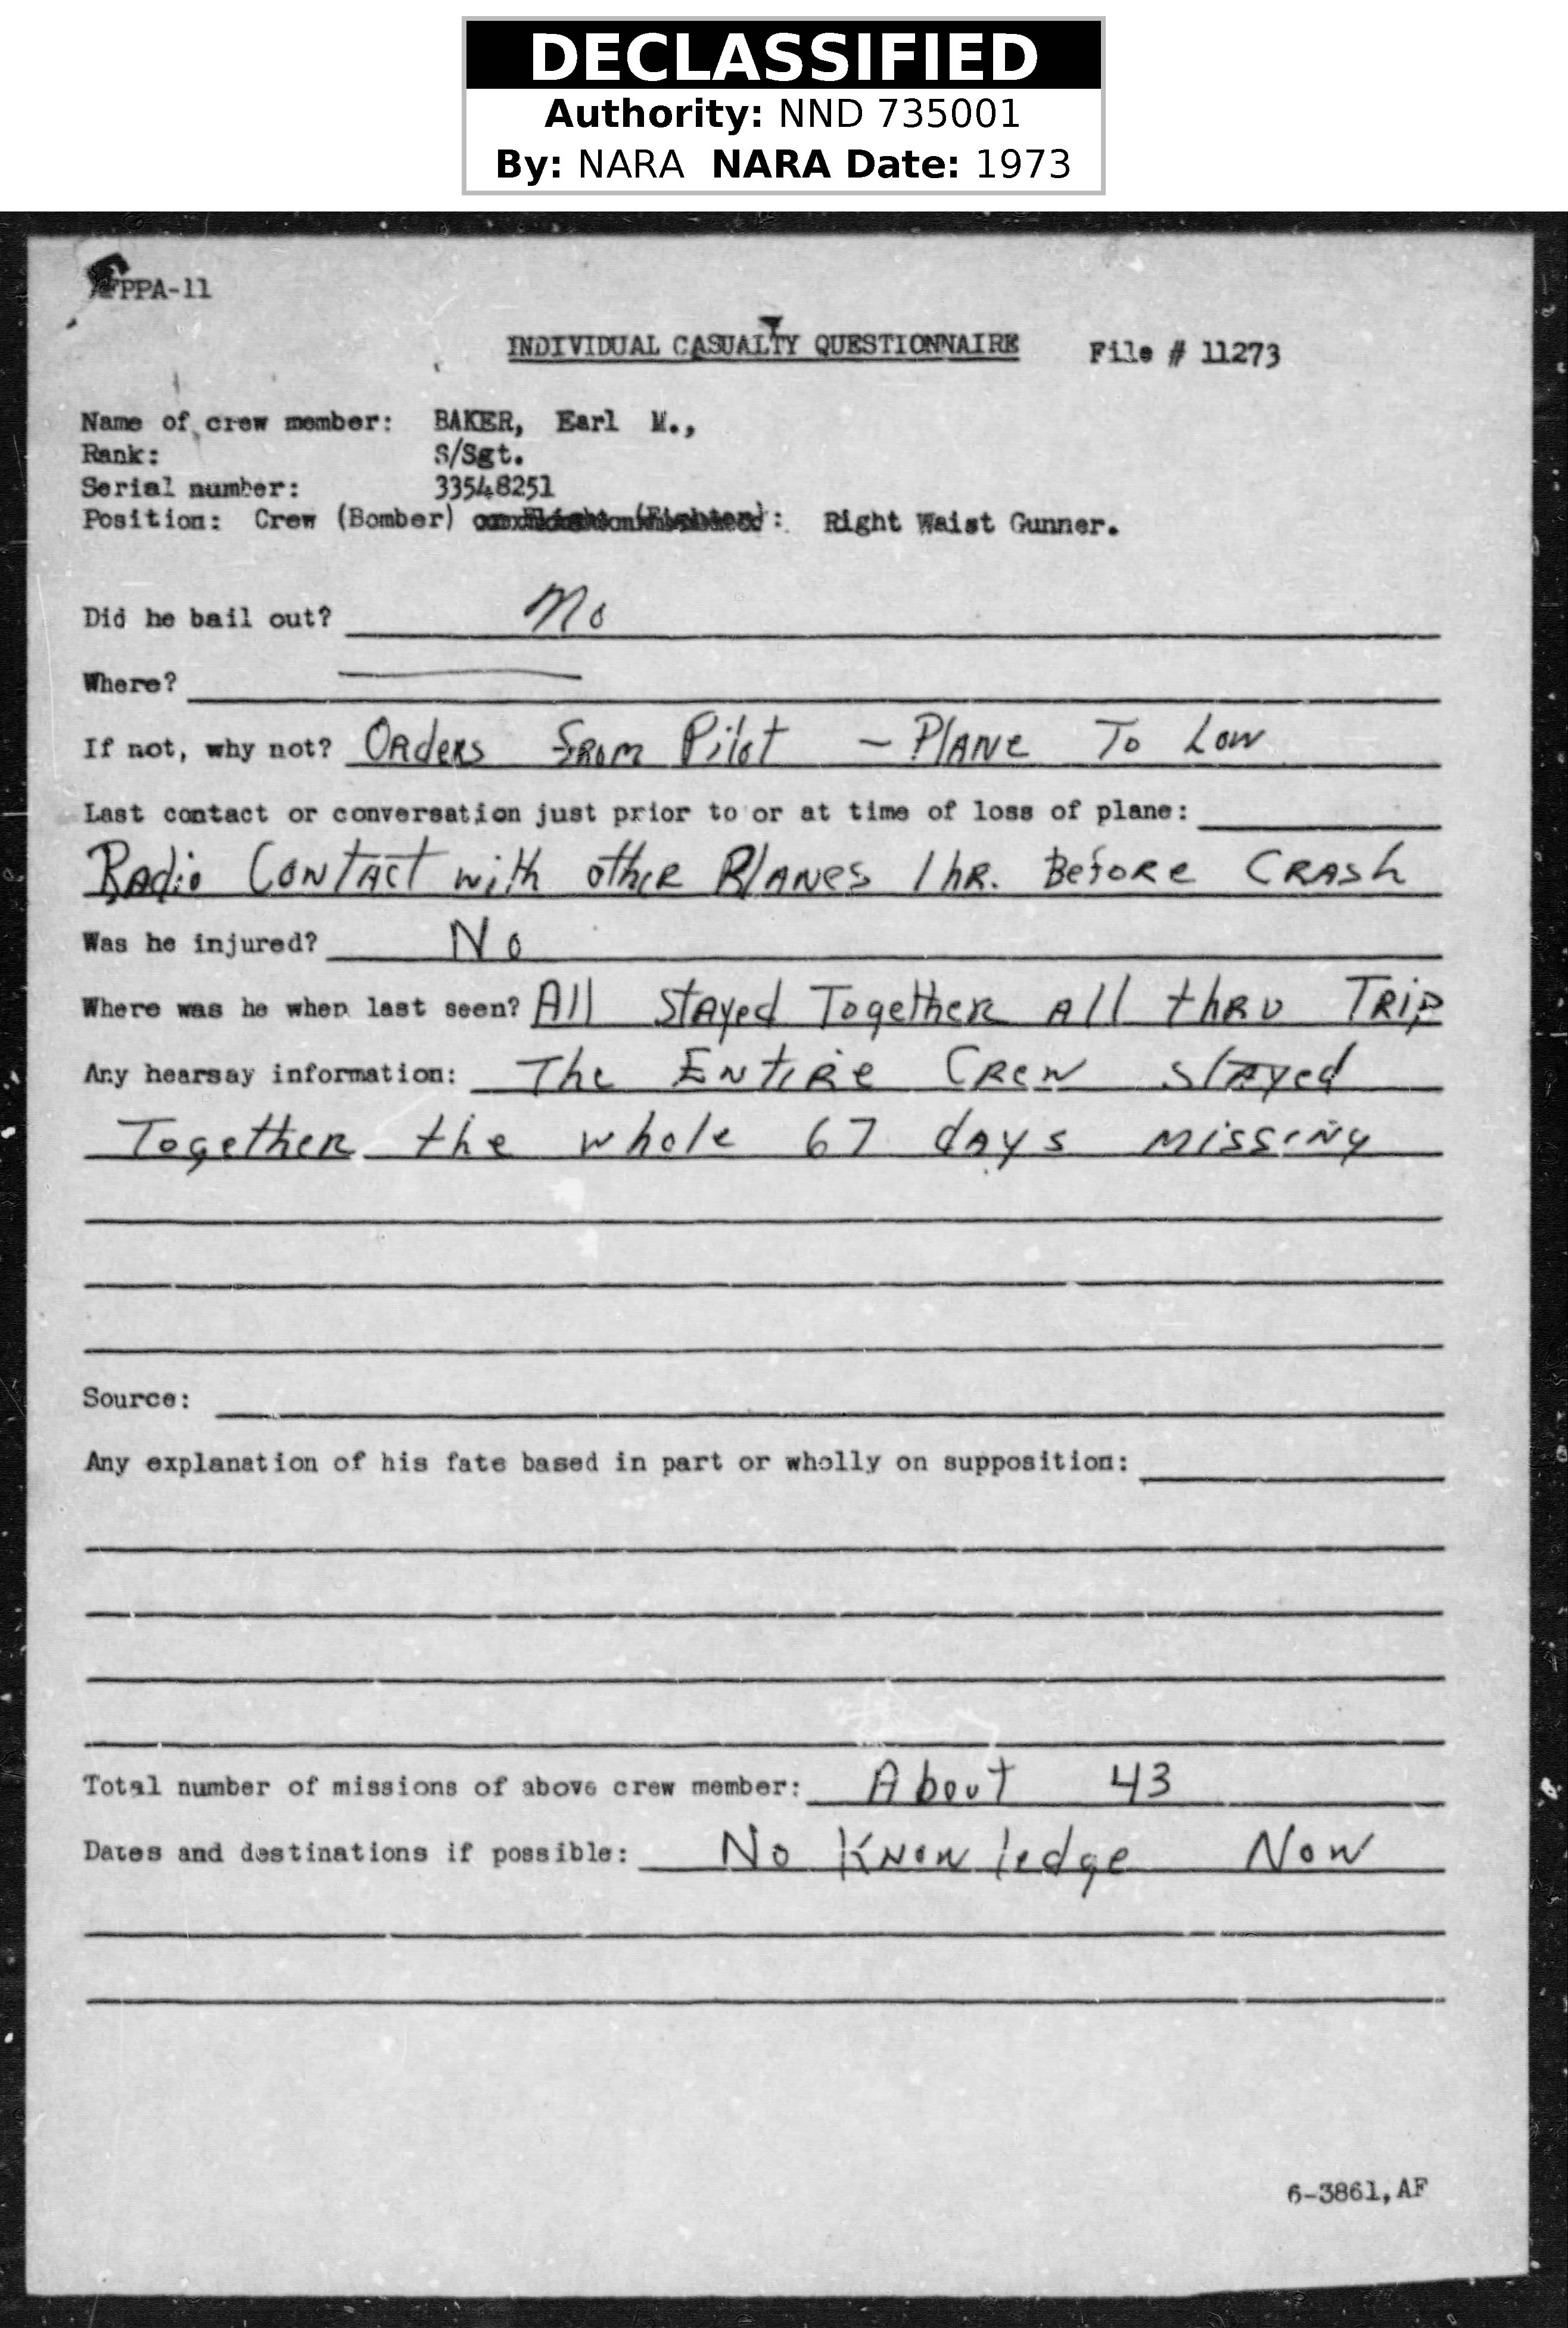 DECLASSIFIED
Authority: NND 735001
By: NARA NARA Date: 1973
PPA-11
INDIVIDUAL CASUALTY QUESTIONNAIRE File # 11273
Name of crew member: BAKER, Earl M.,
Rank: S/Sgt.
Serial number: 33548251
Position: Crew (Bomber) : Right Waist Gunner.
Did he bail out? No
Where?
If not, why not? Orders From Pilot - Plane To Low
Last contact or conversation just prior to or at time of loss of plane:
Radio Contact with other Planes 1 hr. Before Crash
Was he injured? No
Where was he when last seen? All Stayed Together all thru Trip
Any hearsay information: The Entire Crew stayed
Together the whole 67 days missing
Source:
Any explanation of his fate based in part or wholly on supposition:
Total number of missions of above crew member: About 43
Dates and destinations if possible: No Knowledge Now
6-3861,AF